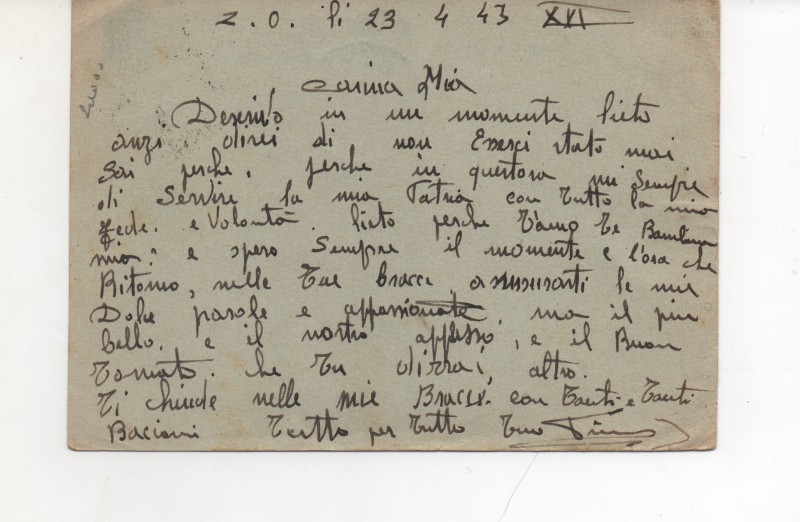 Z. O. li 23 4 43 XXI
Carina Mia
Descrivo in un momento lieto
anzi direi di non Esserci stato mai
Sai perche, perche in questora mi Sempre
di Servire la mia Patria con tutto la mia
fede. e Volontà lieto perche T'amo Te Bambina
mia. e spero Sempre il momento e l'ora che
Ritorno, nelle Tue bracce, a sussurarti le mie
Dolce parole e appassionate, ma il piu
bello. e il nostro, e il Buon
Tornato. che Tu dirrai, altro.
Ti chiude nelle mie Braccie. con Tanti e Tanti
Bacioni Tutto per Tutto Tuo